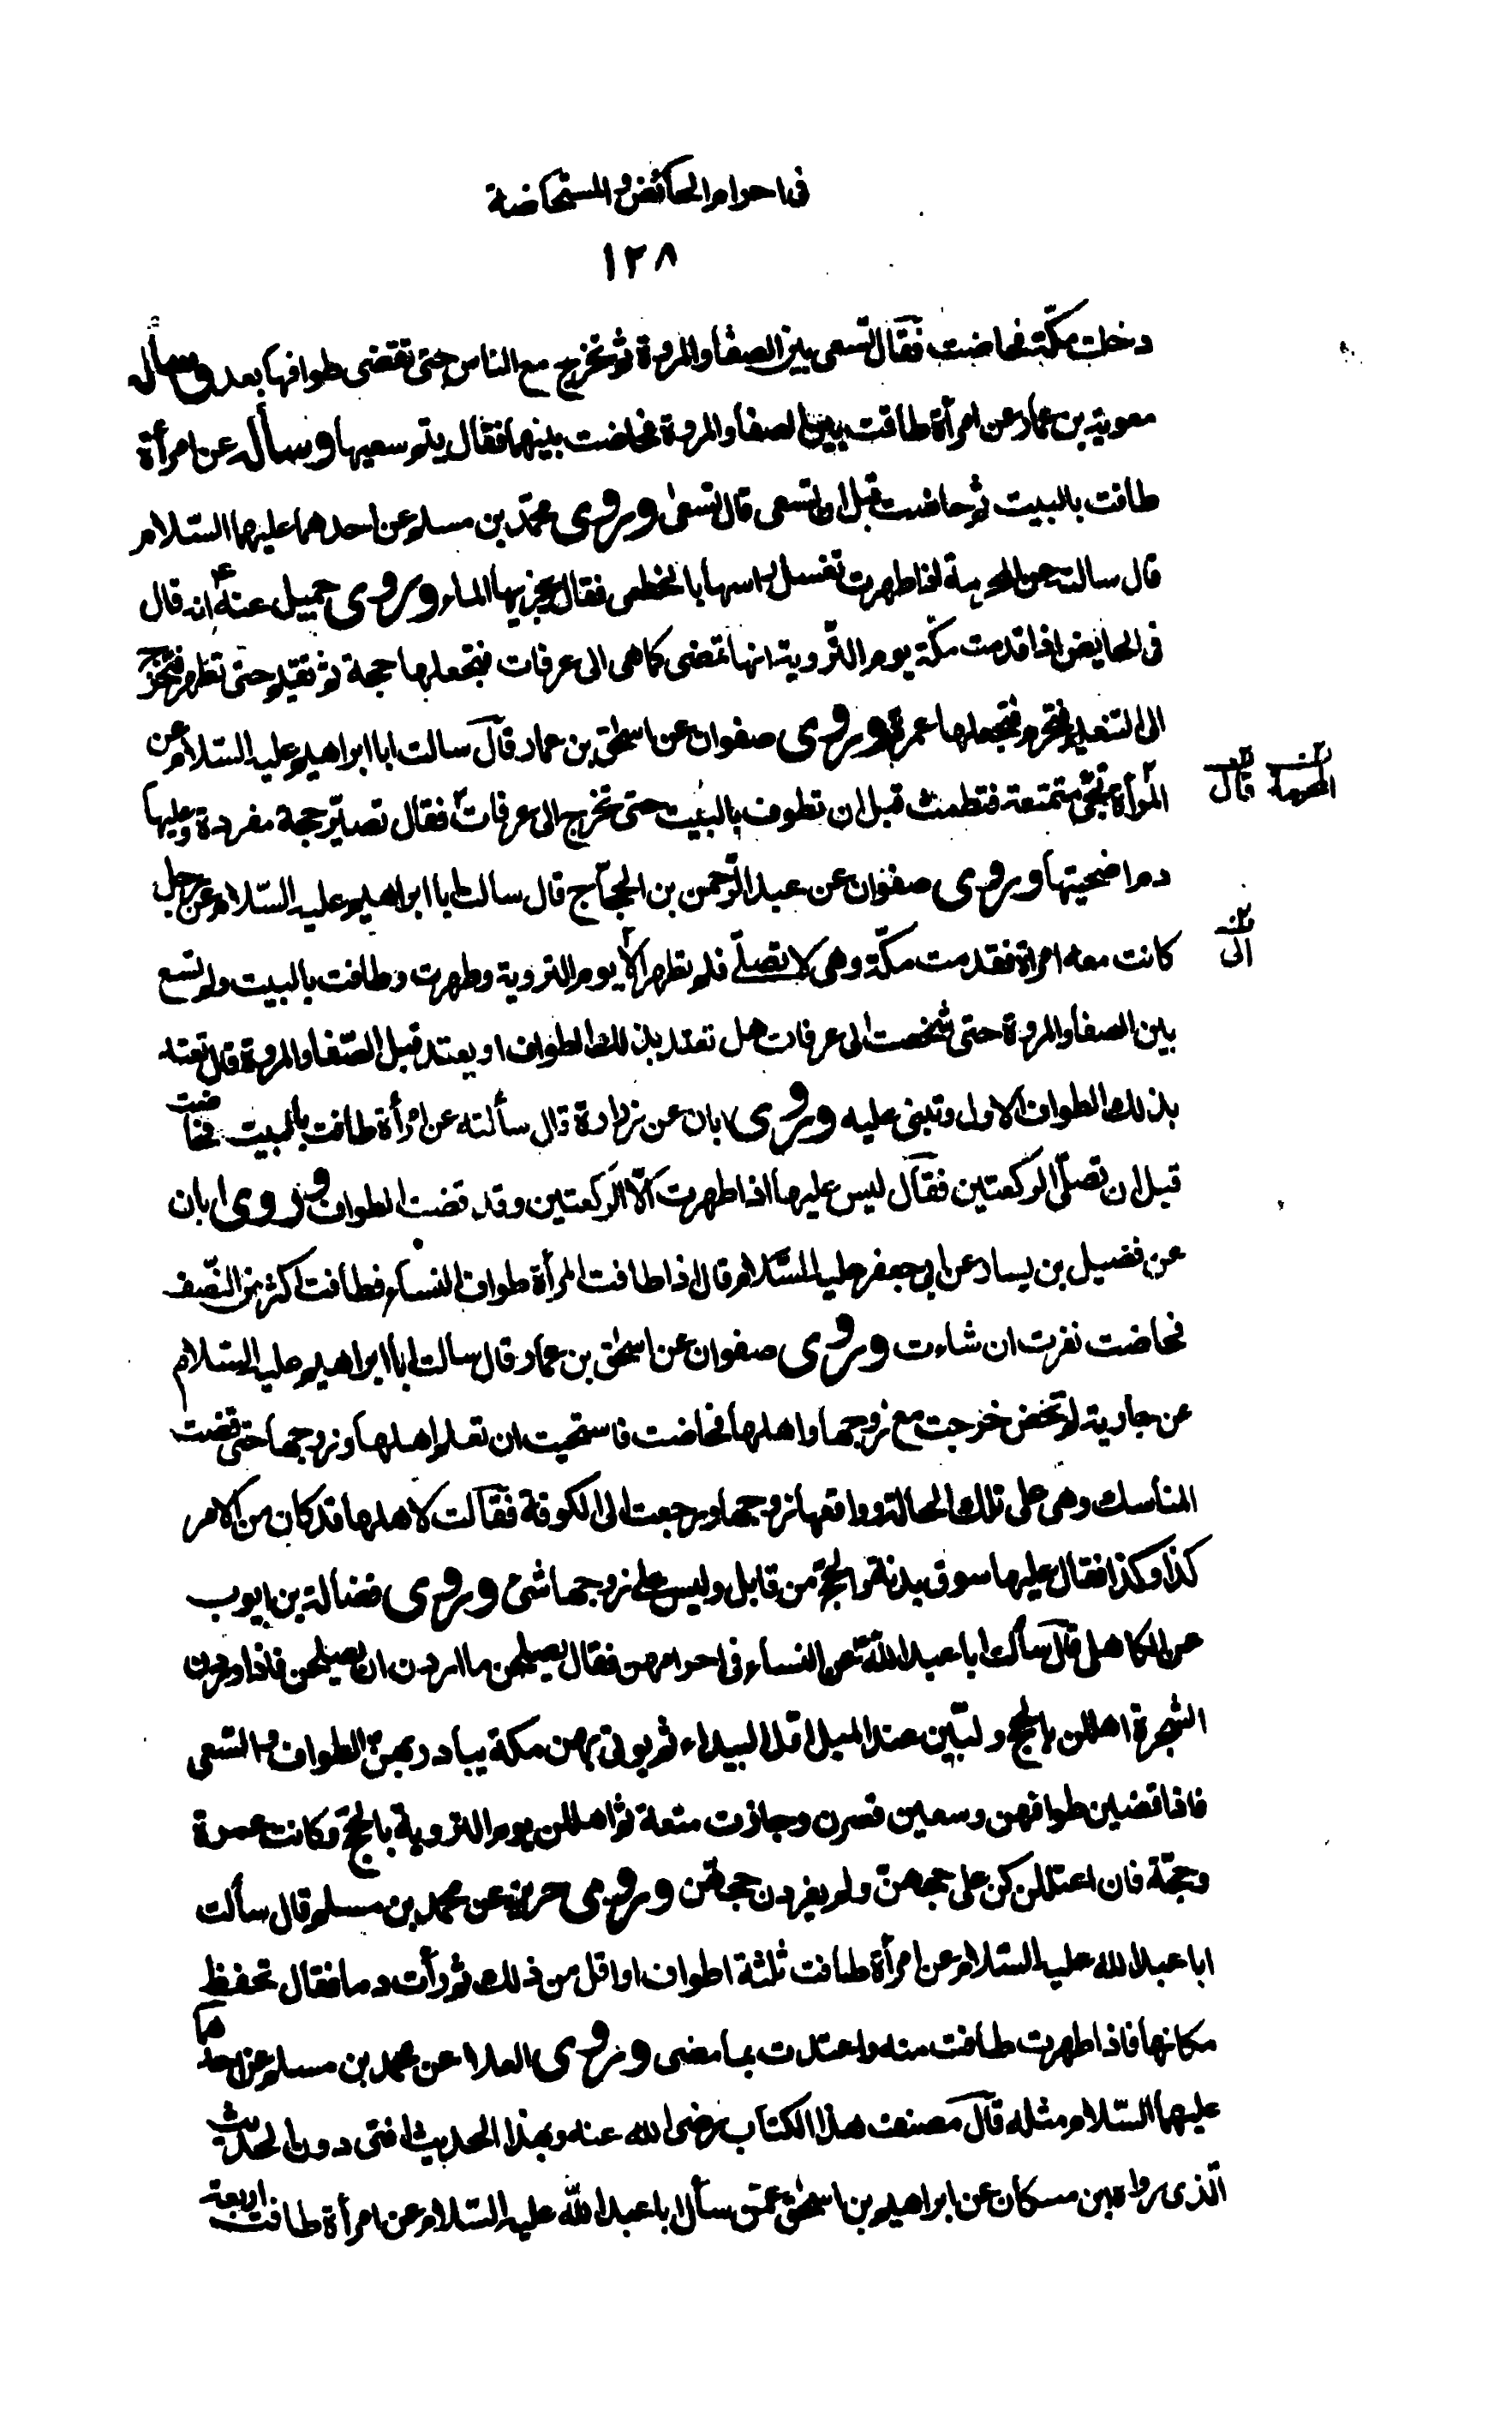 فى احرام الحائض و المستحاضة
١٢٨
دخلت مكّة فحاضت فقال تسعى بين الصفا والمروة ثم تخرج مع الناس حتى تقضى طوافها بعد وسأل
معوية بن عمار عن امرأة طافت بين الصفا والمروة فحاضت بينهما فقال يتم سعيها وسأله عن امرأة
طافت بالبيت ثم حاضت قبل ان تسعى قال تسعى وروى محمّد بن مسلم عن احدهما عليهما السّلام
قال سالته عن المحرمة اذا طهرت تغسل راسها بالخطمى فقال يجزيها الماء وروى جميل عنه ع انه قال
فى الحايض اذا قدمت مكّة يوم التّروية انها تمضى كما هى الى عرفات فتجعلها حجة ثم تقيم حتى تطهر فتخرج
الى التنعيم فتحرم فتجعلها عمرة وروى صفوان عن اسحٰق بن عمار قال سالت ابا ابراهيم عليه السّلام عن
المرأة تجئ متمتعة فتطمث قبل ان تطوف بالبيت حتى تخرج الى عرفات فقال تصير حجة مفردة وعليها
دم اضحيتها وروى صفوان عن عبد الرّحمن بن الحجاج قال سالت ابا ابراهيم عليه السّلام عن رجل
كانت معه امراة فقدمت مكّة وهى لا تصلّى فلم تطهر الا يوم التروية وطهرت وطافت بالبيت ولم تسع
بين الصفا والمروة حتى شخصت الى عرفات هل تعتد بذلك الطواف او يعتد قبل الصّفا والمروة قال تعتد
بذلك الطواف الاول وتبنى عليه وروى ابان عن زرارة قال سألته عن امرأة طافت بالبيت فحاضت
قبل ان تصلّى الركعتين فقال ليس عليها اذا طهرت الّا الركعتين وقد قضت الطواف وروى ابان
عن فضيل بن يسار عن ابى جعفر عليه السّلام قال اذا طافت المرأة طواف النساء فطافت اكثر من النّصف
فحاضت نفرت ان شاءت وروى صفوان عن اسحٰق بن عمار قال سالت ابا ابراهيم عليه السّلام
عن جارية لم تحض خرجت مع زوجها واهلها فحاضت فاستحيت ان تعلم اهلها وزوجها حتى قضت
المناسك وهى على تلك الحالة وواقعها زوجها ورجعت الى الكوفة فقالت لاهلها قد كان من الامر
كذا وكذا فقال عليها سوق بدنة والحج من قابل وليس على زوجها شئ وروى فضالة بن ايوب
عن الكاهلى قال سألت ابا عبد الله ع عن النساء فى احرامهن فقال يصلحن ما اردن ان يصلحن فاذا وردن
الشجرة اهللن بالحج ولبّين عند الميل اول البيداء ثم يوتى بهن مكة يبادر بهنّ الطواف والسّعى
فاذا قضين طوافهن وسعين قصرن وجازت متعة ثم اهللن يوم التروية بالحج وكانت عمرة
وحجّة فان اعتللن كن على حجهن ولم يفردن حجهنّ وروى حريز عن محمد بن مسلم قال سألت
ابا عبد الله عليه السّلام عن امرأة طافت ثلثة اطواف او اقل من ذلك ثم رأت دما فقال تحفظ
مكانها فاذا طهرت طافت منه واعتدت بما مضى وروى العلا عن محمد بن مسلم عن احدهما
عليهما السّلام مثله قال مصنف هذا الكتاب رضى الله عنه وبهذا الحديث افتى دون الحديث
الّذى رواه ابن مسكان عن ابراهيم بن اسحٰق عمن سأل ابا عبد الله عليه السّلام عن امرأة طافت اربعة
قال
الى